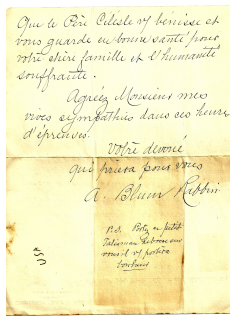 Que le Père Céleste vs bénisse et
vous garde en bonne santé pour
votre chère famille et l'humanité
souffrante.
Agréez Monsieur mes
vives sympathies dans ces heures
d'épreuves.
Votre dévoué
qui priera pour vous
A. Blum Rabbin
petit
Talisman